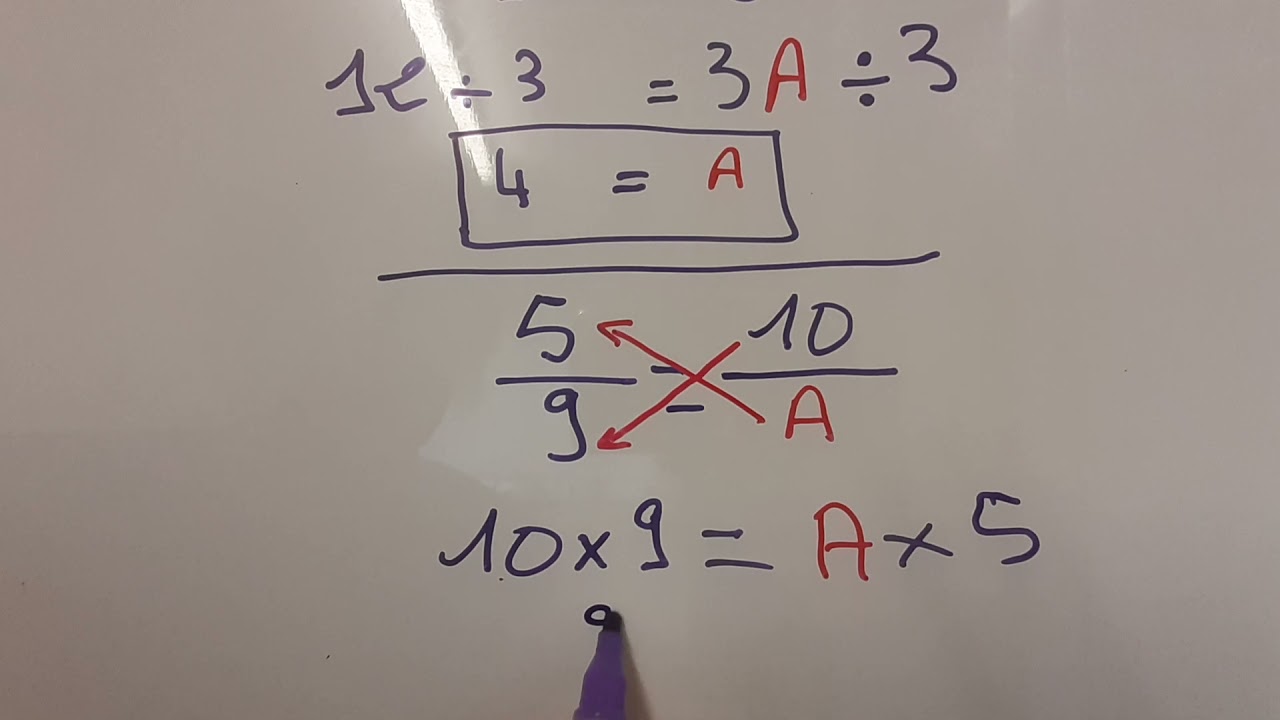 12 ÷ 3 = 3A ÷ 3
4 = A
5/9 = 10/A
10 × 9 = A × 5
9